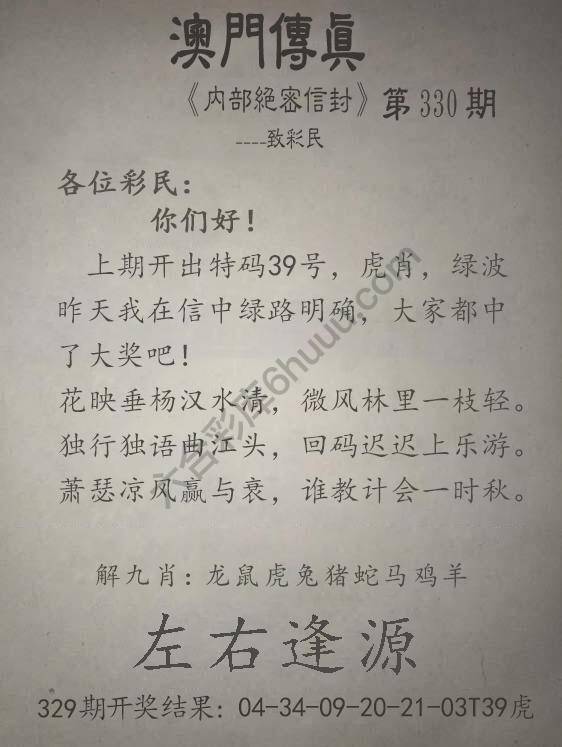 澳門傳眞
《内部絕密信封》第330期
----致彩民
各位彩民：
你们好！
上期开出特码39号，虎肖，绿波
昨天我在信中绿路明确，大家都中
了大奖吧！
花映垂杨汉水清，微风林里一枝轻。
独行独语曲江头，回码迟迟上乐游。
萧瑟凉风赢与衰，谁教计会一时秋。
解九肖：龙鼠虎兔猪蛇马鸡羊
左右逢源
329期开奖结果：04-34-09-20-21-03T39虎
六合彩库6huuu.com